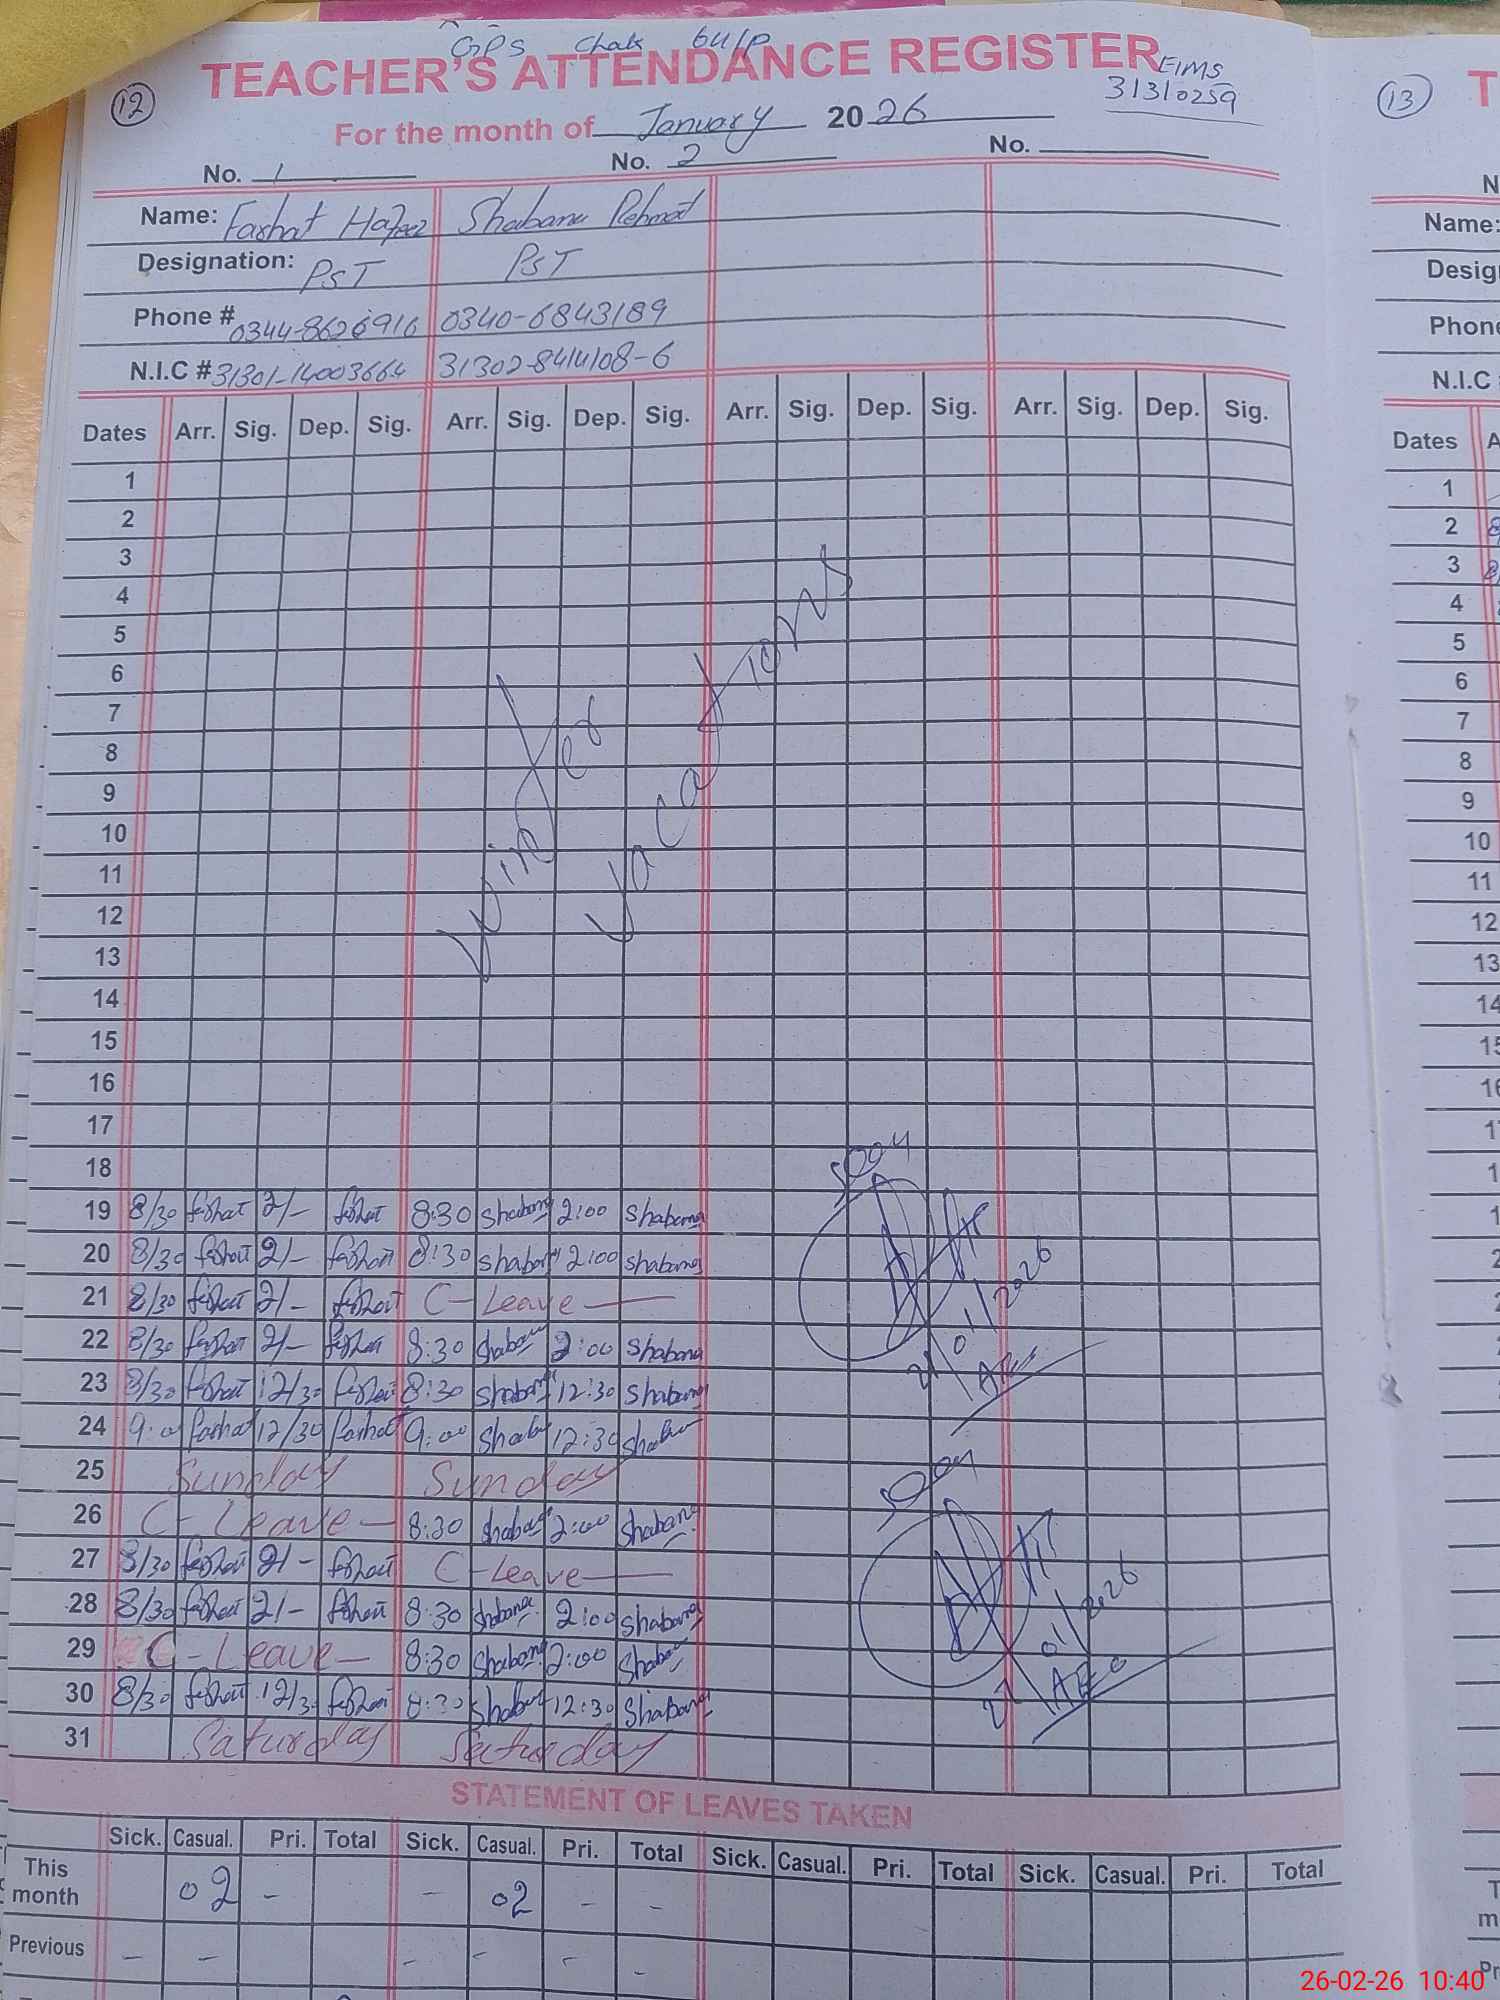 GPS Chak 6U/P
TEACHER'S ATTENDANCE REGISTER
EIMS
31310259
12
For the month of January 2026
No. 1 No. 2 No.
Name: Farhat Hafeez Shabana Rehmat
Designation: PST PST
Phone # 0344-8626916 0340-6843189
N.I.C # 31301-14003664 31302-8414108-6
Dates Arr. Sig. Dep. Sig. Arr. Sig. Dep. Sig. Arr. Sig. Dep. Sig. Arr. Sig. Dep. Sig.
1
2
3
4
5
6
7
8
9
10
11
12
13
14
15
16
17
18
Winter Vacations
19 8/30 farhat 2/- farhat 8:30 Shabana 2:00 Shabana
20 8/30 farhat 2/- farhat 8:30 Shabana 2:00 Shabana
21 8/30 farhat 2/- farhat C-Leave
22 8/30 farhat 2/- farhat 8:30 Shabana 2:00 Shabana
23 8/30 farhat 12/30 farhat 8:30 Shabana 12:30 Shabana
24 9:00 farhat 12/30 farhat 9:00 Shabana 12:30 Shabana
25 Sunday Sunday
26 C-Leave 8:30 Shabana 2:00 Shabana
27 8/30 farhat 2/- farhat C-Leave
28 8/30 farhat 2/- farhat 8:30 Shabana 2:00 Shabana
29 C-Leave 8:30 Shabana 2:00 Shabana
30 8/30 farhat 12/30 farhat 8:30 Shabana 12:30 Shabana
31 Saturday Saturday
STATEMENT OF LEAVES TAKEN
Sick. Casual. Pri. Total Sick. Casual. Pri. Total Sick. Casual. Pri. Total Sick. Casual. Pri. Total
This month 02 - - 02 - -
Previous - - - - - -
13
Name:
Phone
N.I.C
Dates
1
2
3
4
5
6
7
8
9
10
11
12
13
14
26-02-26 10:40